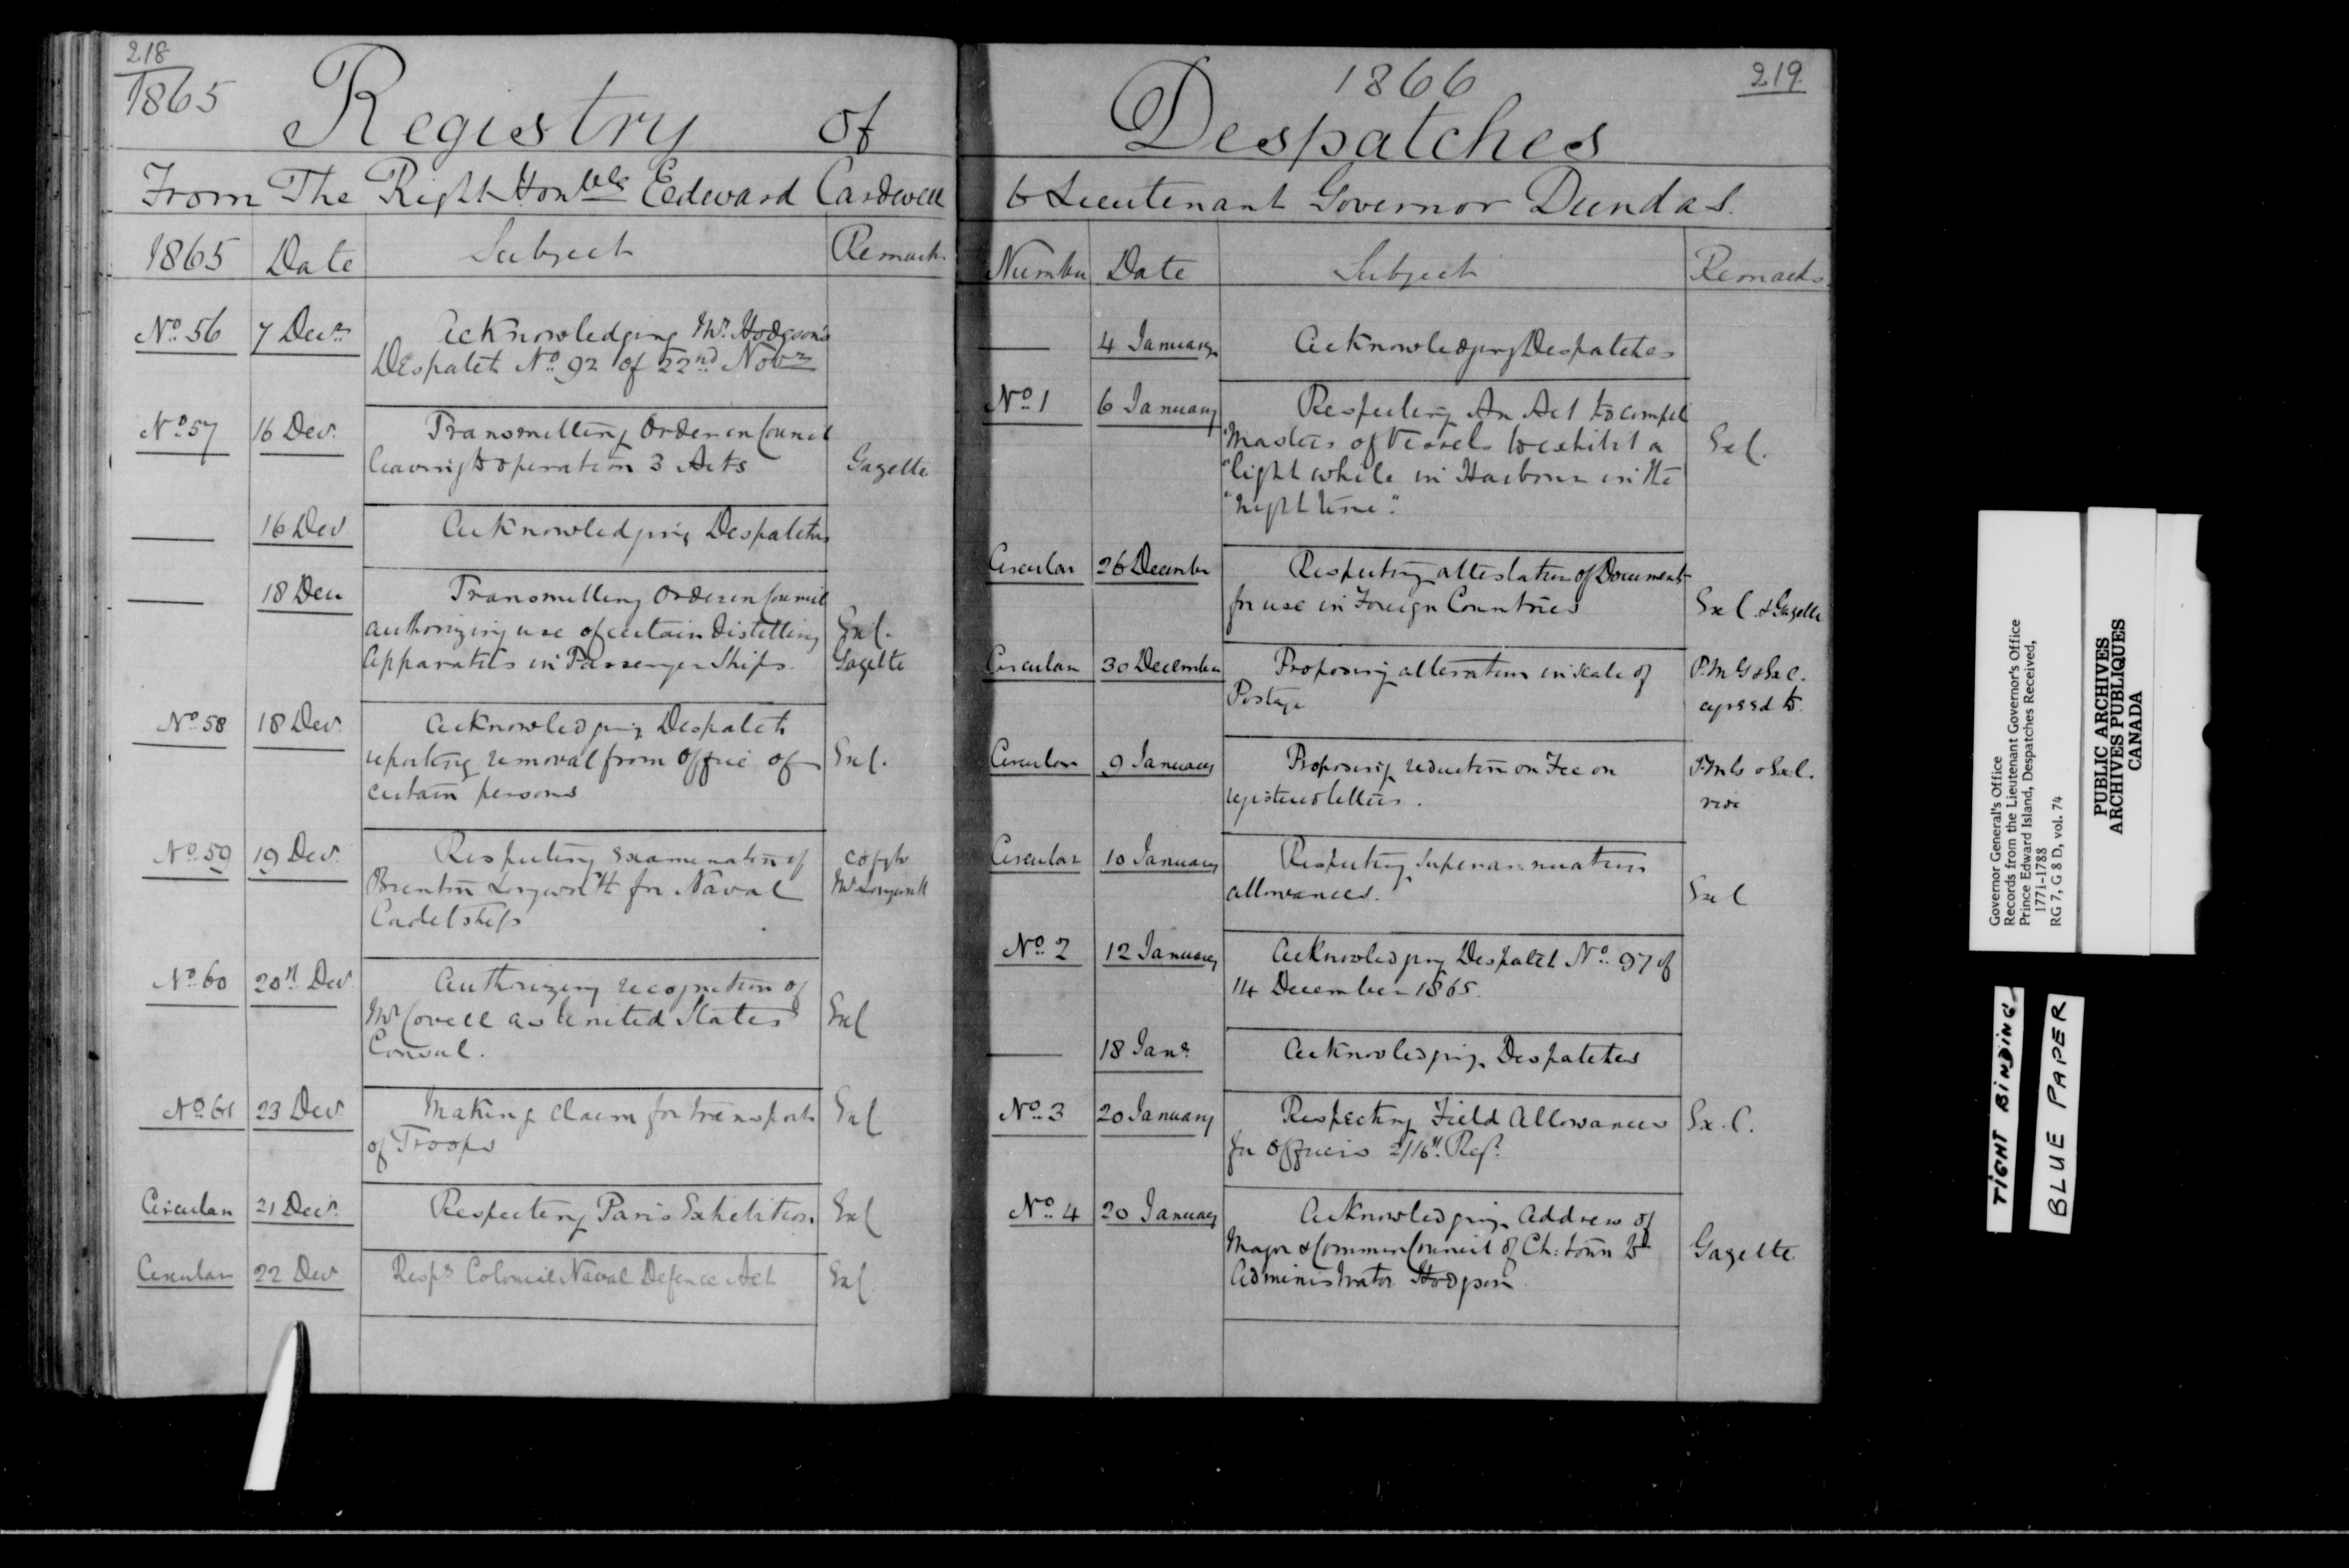 218
1865
Registry of
From The Right Honble Edward Cardwell
1865 Date Subject Remarks
No. 56 7 Decr. Acknowledging Mr. Hodgson's
Despatch No. 92 of 22nd Novr
No. 57 16 Decr. Transmitting Order in Council
leaving to operation 3 Acts Gazette
16 Decr Acknowledging Despatches
18 Decr Transmitting Order in Council
authorizing use of certain Distilling Ex C.
Apparatus in Passenger Ships. Gazette
No. 58 18 Decr. Acknowledging Despatch
reporting removal from office of Ex C.
certain persons
No. 59 19 Decr. Respecting examination of copy to
Brenton Longworth for Naval Mr. Longworth
Cadetship
No. 60 20th Decr. Authorizing recognition of
Mr. Covell as United States Ex C
Consul.
No. 61 23 Decr. Making claim for transport Ex C
of Troops
Circular 21 Decr. Respecting Paris Exhibition Ex C
Circular 22 Decr Respg Colonial Naval Defence Act Ex C
1866
219
Despatches
to Lieutenant Governor Dundas.
Number Date Subject Remarks
4 January Acknowledging Despatches
No. 1 6 January Respecting An Act to compel
"Masters of Vessels to exhibit a Ex C.
"light while in Harbour in the
"night time".
Circular 26 December Respecting attestation of Documents
for use in Foreign Countries Ex C. & Gazette
Circular 30 December Proposing alteration in scale of P.M.G & Ex C.
Postage agreed to
Circular 9 January Proposing reduction on Fee on P.M.G & Ex C.
registered letters.
Circular 10 January Respecting Superannuation
allowances. Ex C
No. 2 12 January Acknowledging Despatch No. 97 of
14 December 1865.
18 Jany. Acknowledging Despatches
No. 3 20 January Respecting Field Allowances Ex. C.
for officers 2/16th. Regt.
No. 4 20 January Acknowledging Address of
Mayor & Common Council of Ch: town to Gazette
Administrator Hodgson
Governor General's Office
Records from the Lieutenant Governor's Office
Prince Edward Island, Despatches Received,
1771-1788
RG 7, G 8 D, vol. 74
PUBLIC ARCHIVES
ARCHIVES PUBLIQUES
CANADA
TIGHT BINDING
BLUE PAPER